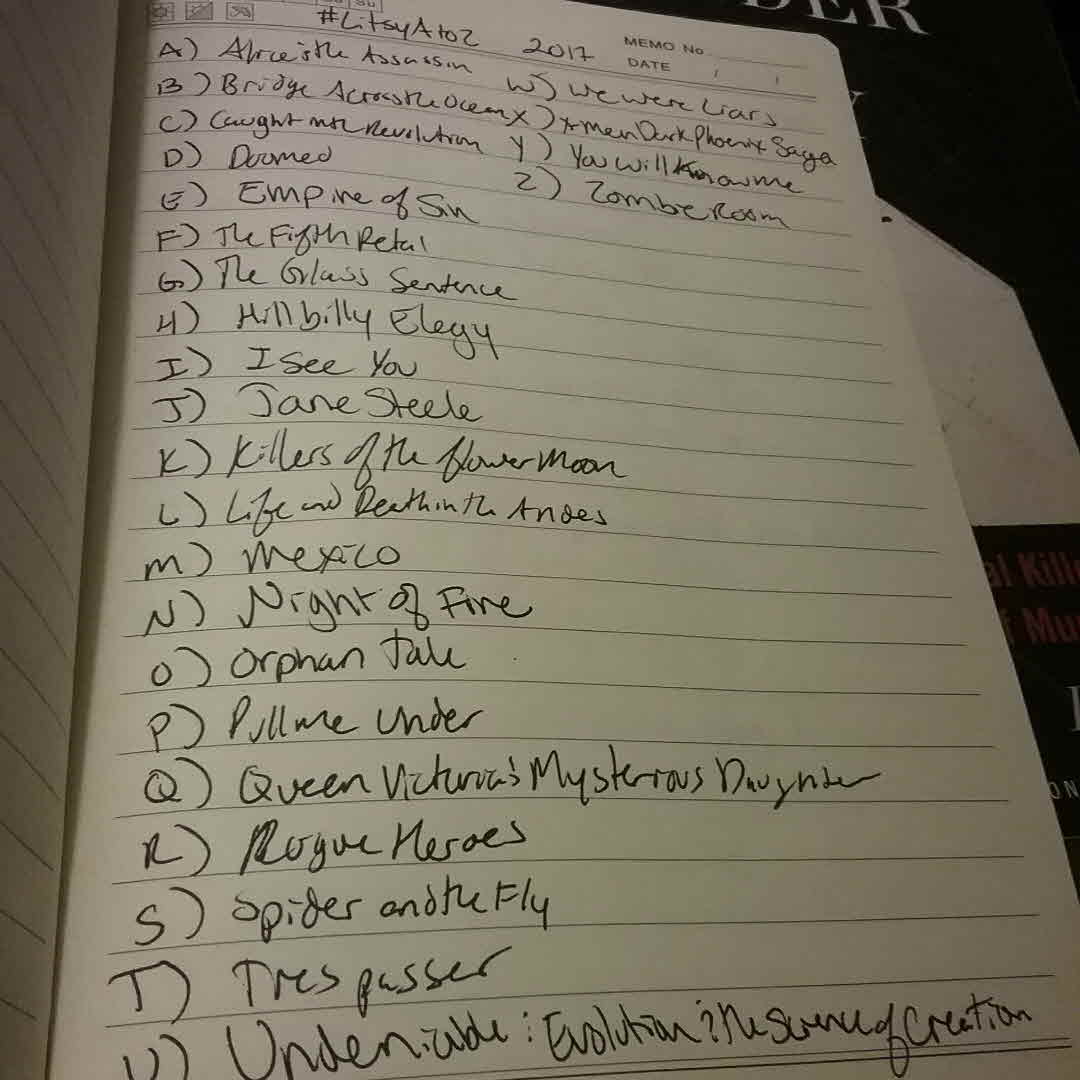 #LitsyAtoZ 2017
MEMO No.
DATE / /
A) Alice & the Assassin
B) Bridge Across the Ocean
C) Caught in the Revolution
D) Doomed
E) Empire of Sin
F) The Fifth Petal
G) The Glass Sentence
H) Hillbilly Elegy
I) I See You
J) Jane Steele
K) Killers of the flower Moon
L) Life and Death in the Andes
M) Mexico
N) Night of Fire
O) Orphan Tale
P) Pull me Under
Q) Queen Victoria's Mysterious Daughter
R) Rogue Heroes
S) Spider and the Fly
T) Trespasser
U) Undeniable: Evolution & the Science of Creation
W) We were Liars
X) X-Men Dark Phoenix Saga
Y) You Will Know me
Z) Zombie Room
DER
al Kille
f Mu
ON